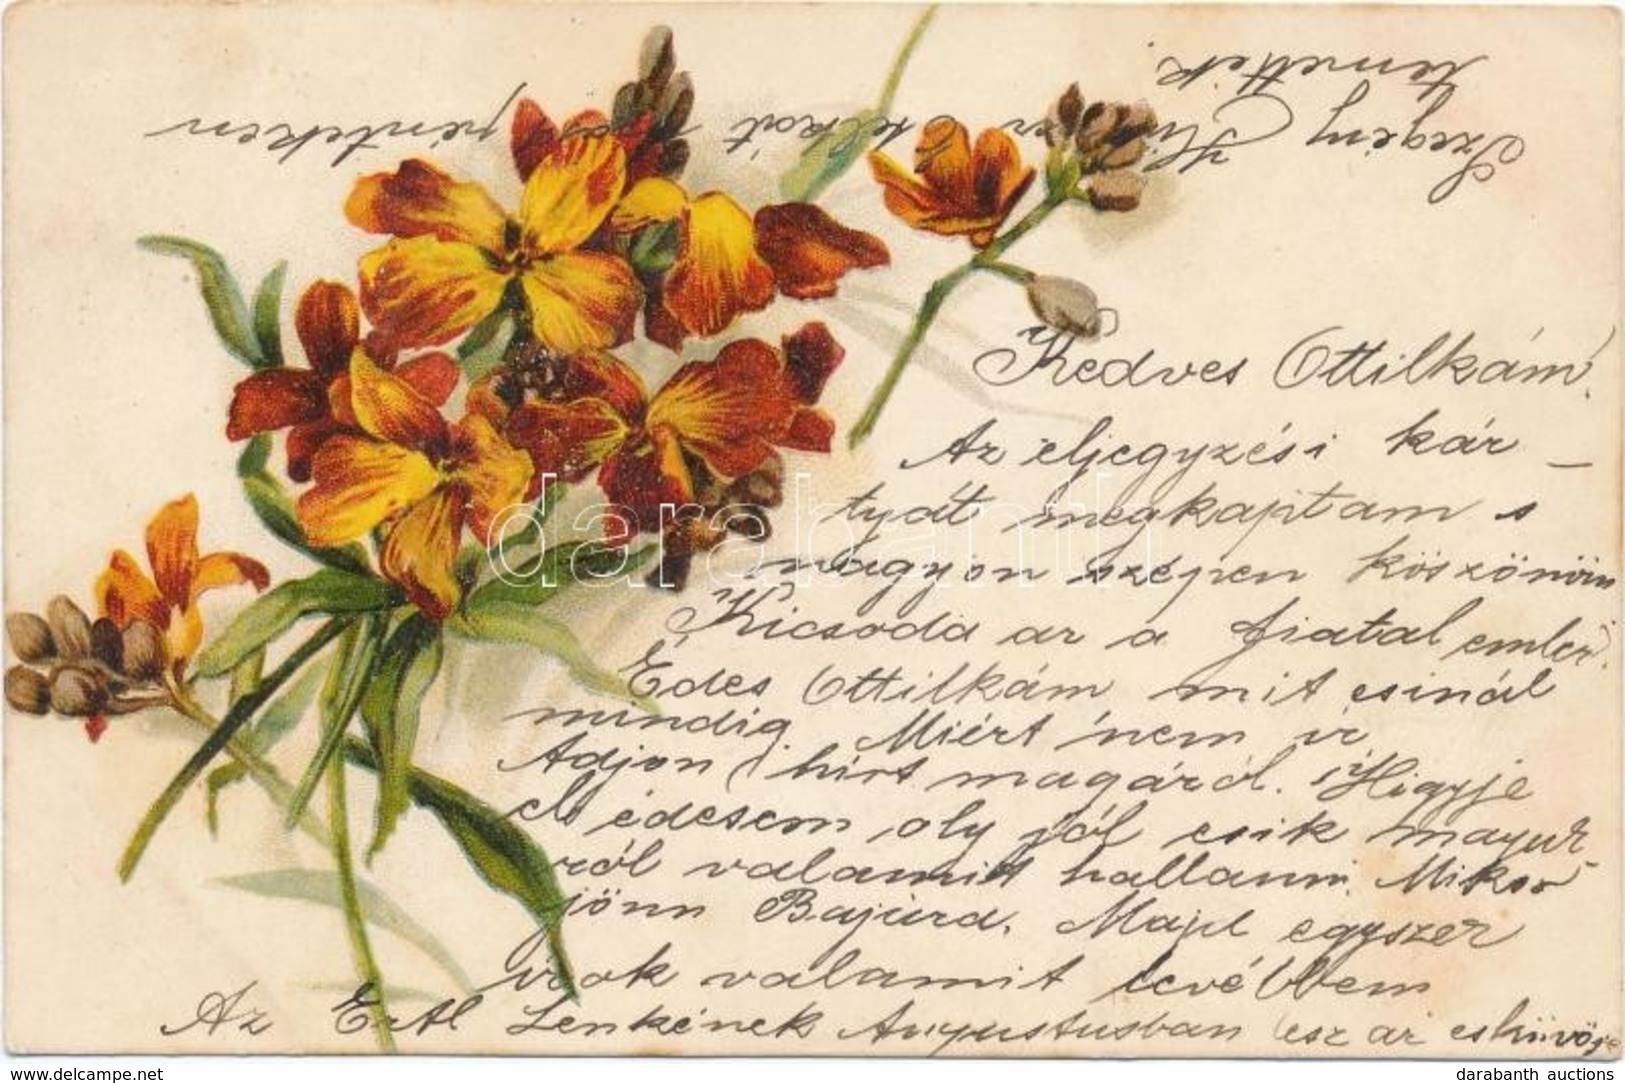 Kedves Ottilkám.
Az eljegyzési kár-
tyát megkaptam s
nagyon szépen köszönöm
Kicsoda az a fiatal ember.
Édes Ottilkám mit csinál
mindig. Miért nem ir
Adjon hirt magáról. Higyje
el édesem oly jól esik magur
ról valamit hallani. Mikor
jönn Bajúra. Majd egyszer
irok valamit bővebbem
Az Ertl Lenkének Augustusban lesz az esküvője
Szegény
pénteken
temettek
darabanth
www.delcampe.net
darabanth auctions